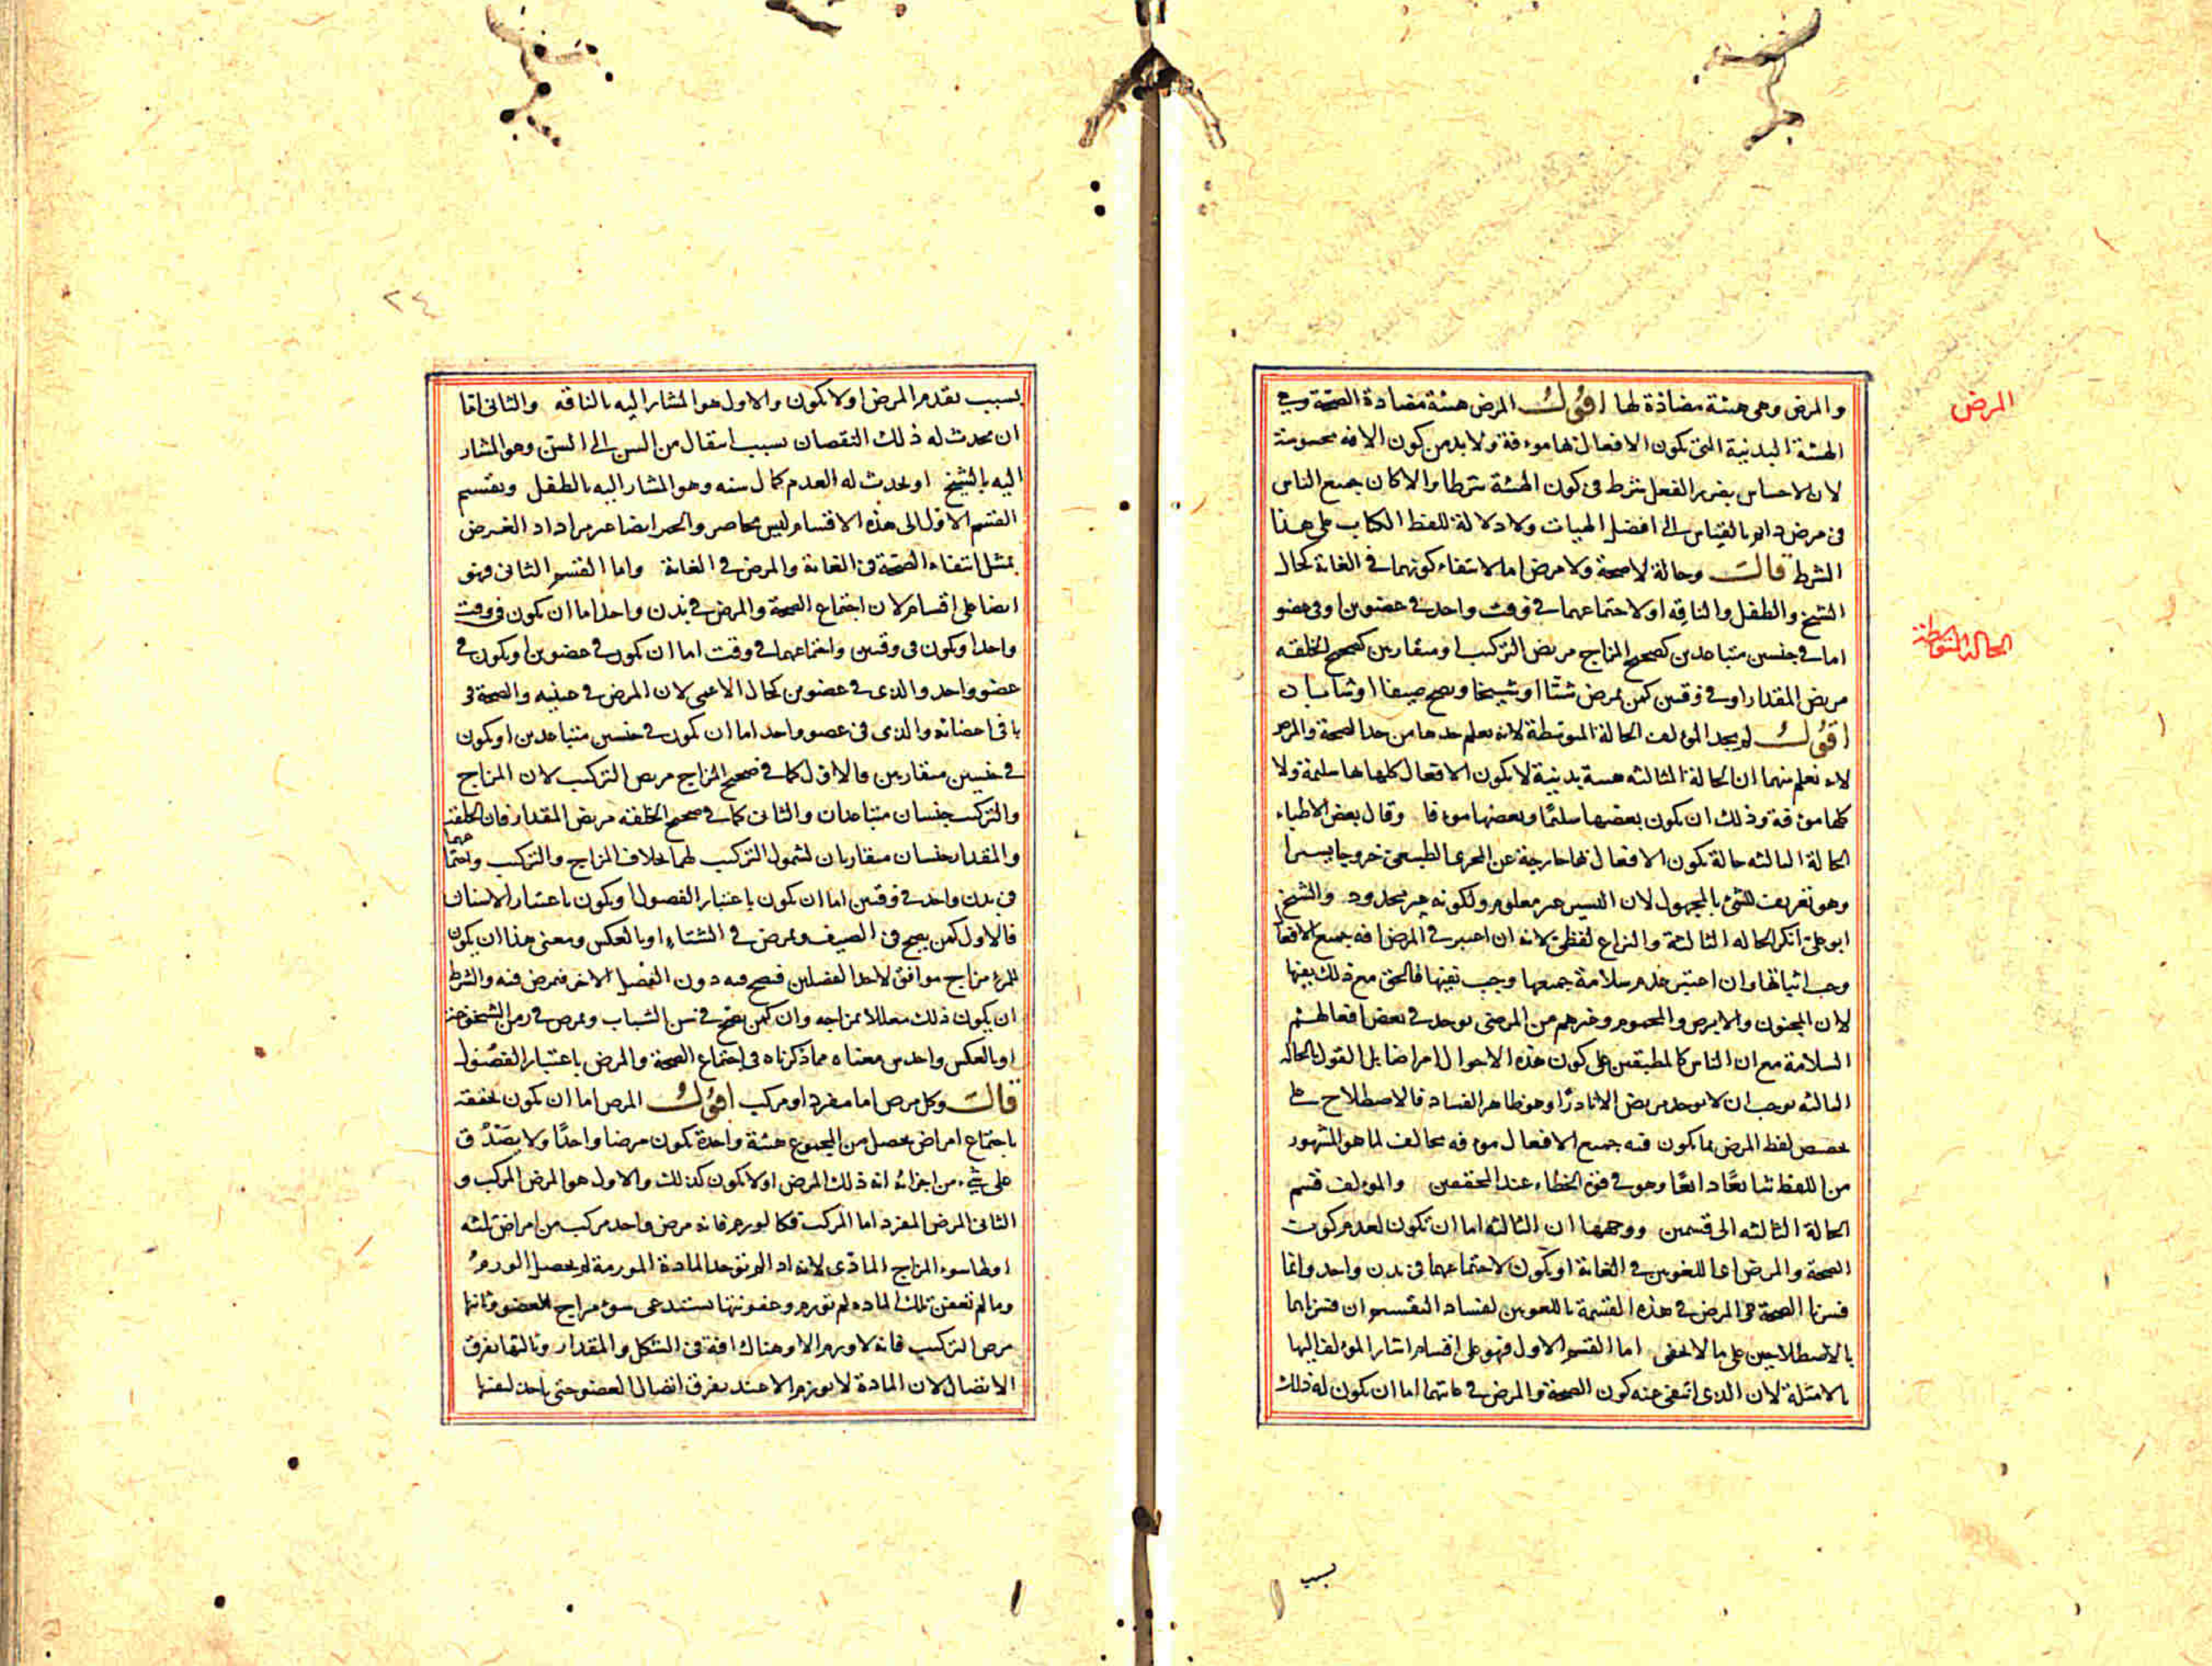 المرض
والمرض وهى هيئة مضادة لها اقول المرض هيئة مضادة الصحة وهي
الهيئة البدنية التى تكون الافعال بها موءفة ولا بد من كون الافه محسوسة
لان الاحساس بضرر الفعل شرط فى كون الهيئة شرطا والا لكان جميع الناس
فى مرض دائم بالقياس الى افضل الهيات ولا دلالة للفظ الكتاب على هذا
الشرط قالت وحالة لا صحة ولا مرض اما لانتفاء كونهما فى الغاية كحال
الشيخ والطفل والناقه او لاجتماعهما فى وقت واحد فى عضوين او فى عضو
الحالة المتوسطة
اما فى جنسين متباعدين كصحيح المزاج مريض التركيب او متقاربين كصحيح الخلقه
مريض المقدار او فى وقتين كمن يمرض شتا او شيخا ويصح صيفا او شابا
اقول لم يحد المؤلف الحالة المتوسطة لانه يعلم حدها من حد الصحة والمرض
لانه نعلم منهما ان الحالة الثالثه هيئة بدنية لا يكون الافعال كلها بها سليمة ولا
كلها موءفة وذلك ان يكون بعضها سليمًا وبعضها موءفا وقال بعض الاطباء
الحالة الثالثه حالة تكون الافعال بها خارجة عن المجرى الطبيعى خروجا يسيرا
وهو تعريف للشئ بالمجهول لان اليسير غير معلوم ولكونه غير محدود والشيخ
ابو على انكر الحاله الثالثة والنزاع لفظى لانه ان اعتبر فى المرض افه جميع الافعال
وجب اثباتها وان اعتبر عدم سلامة جميعها وجب نفيها فالحق مع ذلك نفيها
لان المجنون والابرص والمحموم وغيرهم من المرضى يوجد فى بعض افعالهم
السلامة مع ان الناس كالمطبقين على كون هذه الاحوال امراضا بل القول بالحالة
الثالثه يوجب ان لا يوجد مريض الا نادرًا وهو ظاهر الفساد فالاصطلاح على
تخصيص لفظ المرض بما يكون فيه جميع الافعال موءفه مخالف لما هو المشهور
من اللفظ شايعًا ذايعًا وهو فى قوة الخطاء عند المحققين والمؤلف قسم
الحالة الثالثه الى قسمين ووجهها ان الثالثه اما ان تكون لعدم كون
الصحة والمرض اعا اللغويين فى الغاية او يكون لاجتماعهما فى بدن واحد وانما
فسرنا الصحة والمرض فى هذه القسمة باللغويين لفساد التقسيم ان فسرناهما
بالاصطلاحيين على ما لا يخفى اما القسم الاول فهو على اقسام اشار المؤلف اليها
بالامثلة لان الذى انتفى عنه كون الصحة والمرض فى غايتهما اما ان يكون له ذلك
بسبب
٢٤
بسبب تقدم المرض او لا يكون والاول هو المشار اليه بالناقه والثانى اما
ان يحدث له ذلك النقصان بسبب انتقال من السن الى السن وهو المشار
اليه بالشيخ او يحدث له العدم كمال سنه وهو المشار اليه بالطفل وتقسيم
القسم الاول الى هذه الاقسام ليس بحاصر والحصر ايضا غير مراد اذ الغرض
تمثيل انتفاء الصحة فى الغاية والمرض فى الغاية واما القسم الثانى فهو
ايضا على اقسام لان اجتماع الصحة والمرض فى بدن واحد اما ان يكون فى وقت
واحد او يكون فى وقتين واجتماعهما فى وقت اما ان يكون فى عضوين او يكون فى
عضو واحد والذى فى عضوين كحال الاعمى لان المرض فى عينيه والصحة فى
باقى اعضائه والذى فى عضو واحد اما ان يكون فى جنسين متباعدين او يكون
فى جنسين متقاربين فالاول كما فى صحيح المزاج مريض التركيب لان المزاج
والتركيب جنسان متباعدان والثانى كما فى صحيح الخلقة مريض المقدار فان الخلقة
والمقدار جنسان متقاربان لشمول التركيب لهما بخلاف المزاج والتركيب واجتماعهما
فى بدن واحد فى وقتين اما ان يكون باعتبار الفصول او يكون باعتبار الاسنان
فالاول كمن يصح فى الصيف ويمرض فى الشتاء او بالعكس ومعنى هذا ان يكون
للمرء مزاج موافق لاحد الفصلين فيصح فيه دون الفصل الاخر فيمرض فيه والشرط
ان يكون ذلك معللا بمزاجه وان كمن يصح فى سن الشباب ويمرض فى زمن الشيخوخة
او بالعكس واحد من معناه مما ذكرناه فى اجتماع الصحة والمرض باعتبار الفصول
قالت وكل مرض اما مفرد او مركب اقول المرض اما ان يكون تحققه
باجتماع امراض يحصل من المجموع هيئة واحدة يكون مرضا واحدًا ولا يصدق
على شئ من اجزائه انه ذلك المرض او لا يكون كذلك والاول هو المرض المركب و
الثانى المرض المفرد اما المركب فكالورم فانه مرض واحد مركب من امراض ثلثه
اولها سوء المزاج المادى لانه اذا لم توجد المادة المورمة لم يحصل الورم
وما لم تعفن تلك الماده لم تورم وعفونتها تستدعى سوء مزاج العضو وثانيها
مرض التركيب فانه لا ورم الا وهناك افة فى الشكل والمقدار وثالثها تفرق
الاتصال لان المادة لا تورم الا عند تفرق اتصال العضو حتى ياخذ لنفسها